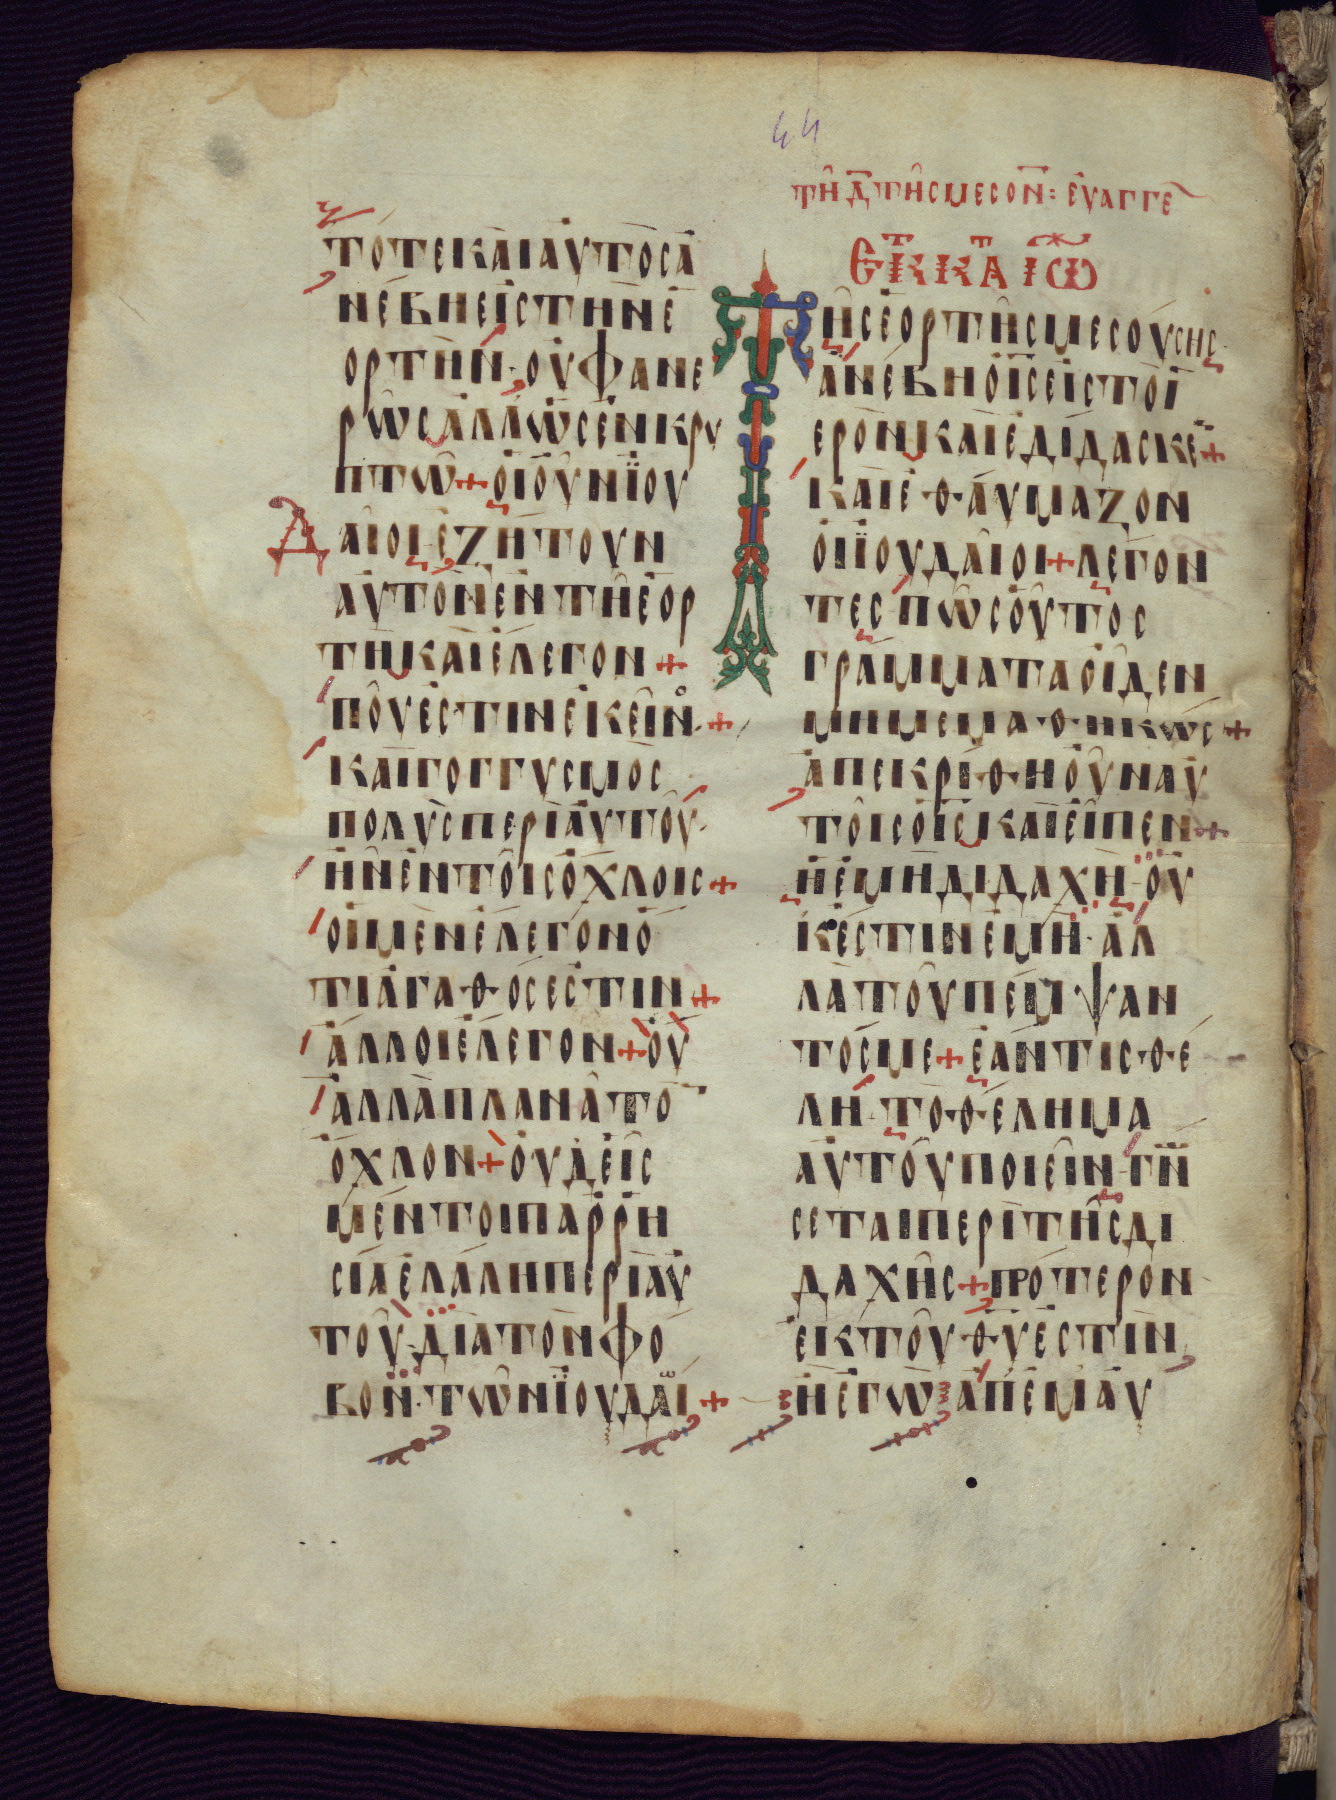 44
ΤΗ Δ ΤΗΣ ΜΕΣΟΝ: ΕΥΑΓΓΕ
ΤΟΤΕΚΑΙΑΥΤΟΣΑ
ΝΕΒΗΕΙΣΤΗΝΕ
ΟΡΤΗΝ·ΟΥΦΑΝΕ
ΡΩΣΑΛΛΩΣΕΝΚΡΥ
ΠΤΩ+ΟΙΟΥΝΪΟΥ
ΔΑΙΟΙΕΖΗΤΟΥΝ
ΑΥΤΟΝΕΝΤΗΕΟΡ
ΤΗΚΑΙΕΛΕΓΟΝ+
ΠΟΥΕΣΤΙΝΕΚΕΙΝο+
ΚΑΙΓΟΓΓΥΣΜΟΣ
ΠΟΛΥΣΠΕΡΙΑΥΤΟΥ·
ΗΝΕΝΤΟΙΣΟΧΛΟΙΣ+
ΟΙΜΕΝΕΛΕΓΟΝΟ
ΤΙΑΓΑΘΟΣΕΣΤΙΝ+
ΑΛΛΟΙΕΛΕΓΟΝ+ΟΥ
ΑΛΛΑΠΛΑΝΑΤΟ
ΟΧΛΟΝ+ΟΥΔΕΙΣ
ΜΕΝΤΟΙΠΑΡΡΗ
ΣΙΑΕΛΑΛΗΠΕΡΙΑΥ
ΤΟΥ·ΔΙΑΤΟΝΦΟ
ΒΟΝ·ΤΩΝΪΟΥΔΑΙω+
ΕΚ Κ̅Α̅Τ ΙΩ
ΤΗΣΕΟΡΤΗΣΜΕΣΟΥΣΗΣ·
ΑΝΕΒΗΟΙ̅Σ̅ΕΙΣΤΟΙ
ΕΡΟΝΚΑΙΕΔΙΔΑΣΚΕ+
ΚΑΙΕΘΑΥΜΑΖΟΝ
ΟΙΪΟΥΔΑΙΟΙ+ΛΕΓΟΝ
ΤΕΣ·ΠΩΣΟΥΤΟΣ
ΓΡΑΜΜΑΤΑΟΙΔΕΝ
ΜΗΜΕΜΑΘΗΚΩΣ+
ΑΠΕΚΡΙΘΗΟΥΝΑΥ
ΤΟΙΣΟΙ̅Σ̅ΚΑΙΕΙΠΕΝ+
ΗΕΜΗΔΙΔΑΧΗ·ΟΥ
ΚΕΣΤΙΝΕΜΗ·ΑΛ
ΛΑΤΟΥΠΕΜΨΑΝ
ΤΟΣΜΕ+ΕΑΝΤΙΣΘΕ
ΛΗ·ΤΟΘΕΛΗΜΑ
ΑΥΤΟΥΠΟΙΕΙΝ·ΓΝΩ
ΣΕΤΑΙΠΕΡΙΤΗΣΔΙ
ΔΑΧΗΣ+ΠΟΤΕΡΟΝ
ΕΚΤΟΥΘ̅Υ̅ΕΣΤΙΝ
ΗΕΓΩΑΠΕΜΑΥ